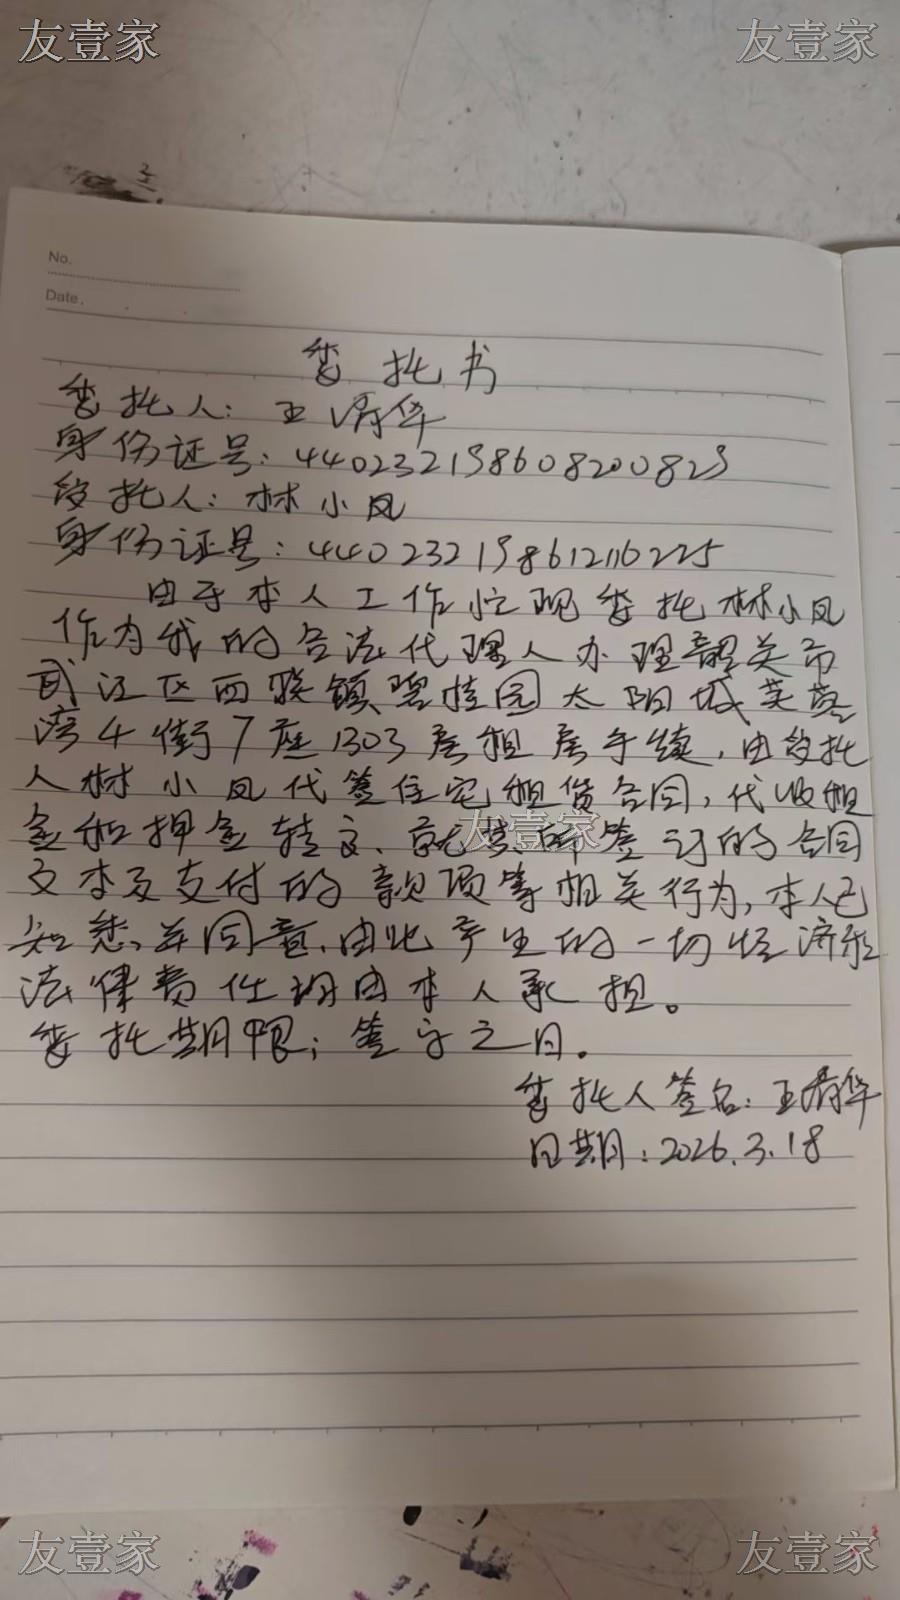 友壹家 友壹家
No.
Date.
委托书
委托人:王清华
身份证号:440232198608200829
受托人:林小凤
身份证号:440232198612116225
由于本人工作忙现委托林小凤
作为我的合法代理人办理韶关市
武江区西联镇碧桂园太阳城芙蓉
湾4街7座1303房租房手续,由受托
人林小凤代签住宅租赁合同,代收租
金和押金转交、就其所签订的合同
文本及支付的款项等相关行为,本人已
知悉,并同意,由此产生的一切经济和
法律责任均由本人承担。
委托期限:签字之日。
委托人签名:王清华
日期:2026.3.18
友壹家
友壹家 友壹家